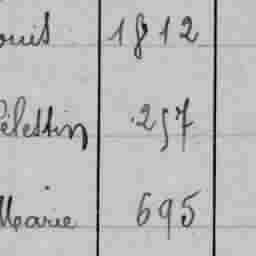 ouis 1812
élestin 257
Marie 695